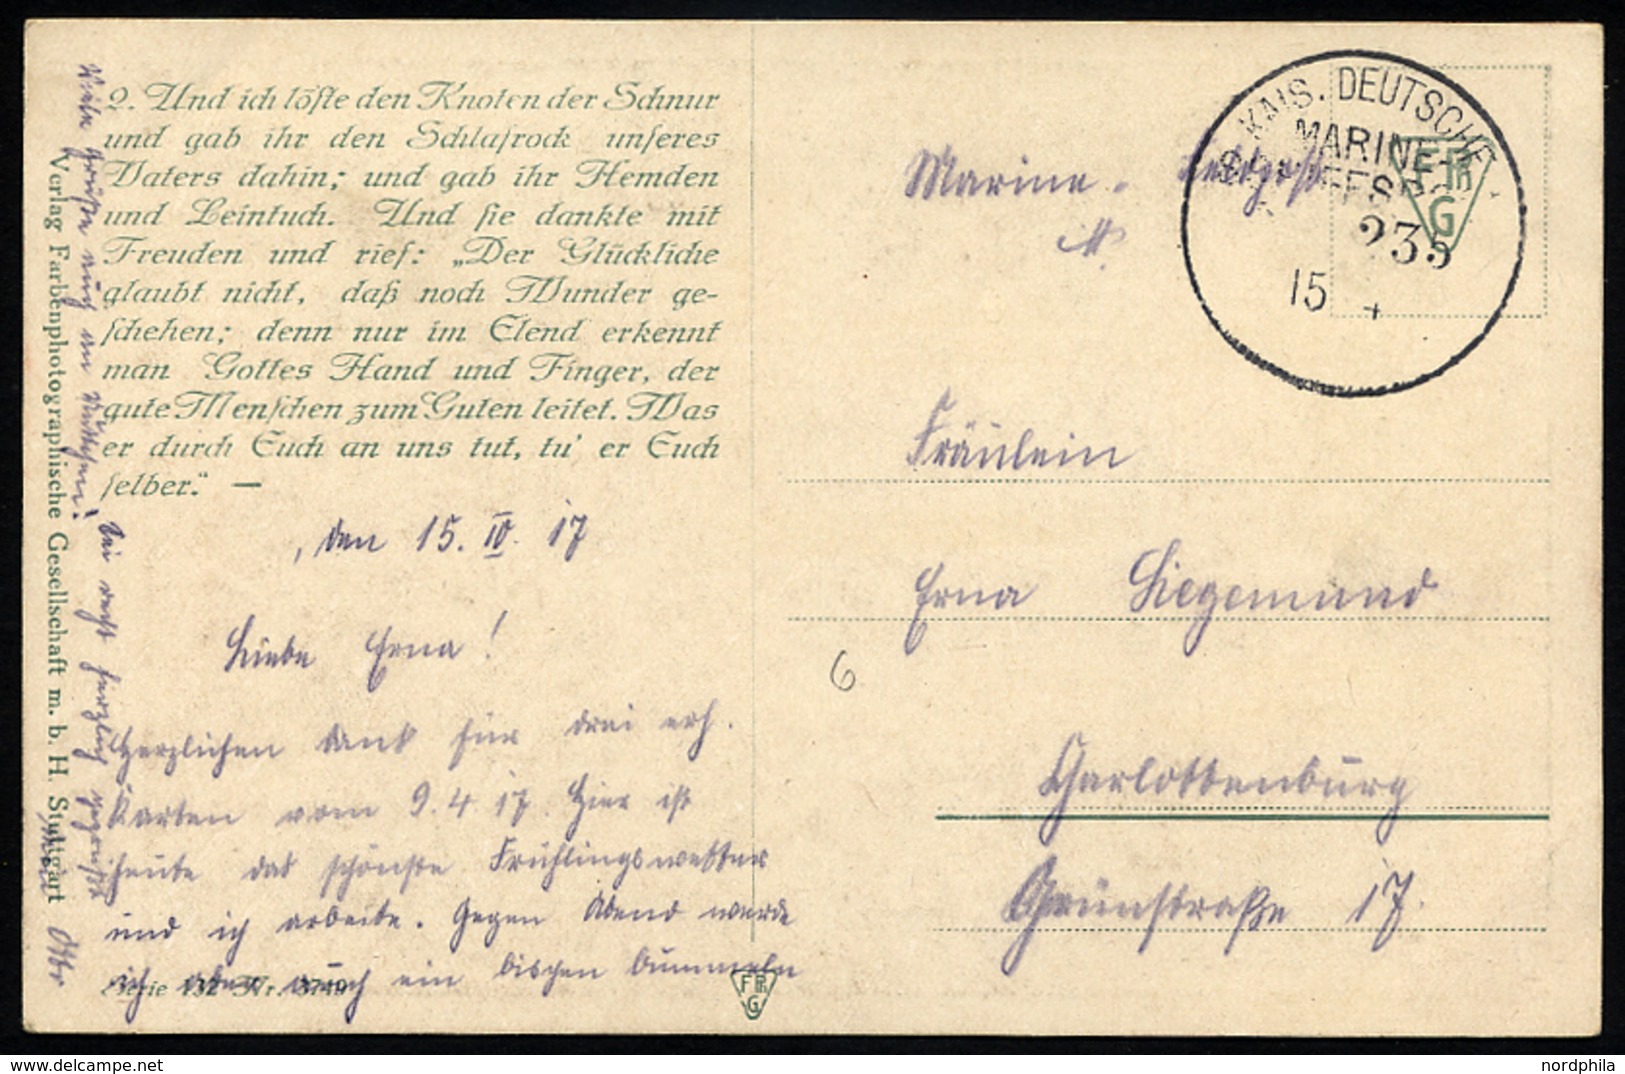 2. Und ich löste den Knoten der Schnur
und gab ihr den Schlafrock unseres
Vaters dahin; und gab ihr Hemden
und Leintuch. Und sie dankte mit
Freuden und rief: „Der Glückliche
glaubt nicht, daß noch Wunder ge-
schehen; denn nur im Elend erkennt
man Gottes Hand und Finger, der
gute Menschen zum Guten leitet. Was
er durch Euch an uns tut, tu' er Euch
selber.“ —
, den 15. IV. 17
Liebe Erna!
Herzlichen Dank für drei erh.
Karten vom 9.4.17. Hier ist
heute das schönste Frühlingswetter
und ich arbeite. Gegen Abend werde
ich aber auch ein bischen bummeln
Serie 132 Nr. 3749
Viele Grüße auch an Muttchen! Sei recht herzlich gegrüßt
Otto
Verlag Farbenphotographische Gesellschaft m. b. H. Stuttgart
FPh
G
Marine - Feldpost
M.
KAIS. DEUTSCHE
MARINE-
SCHIFFSPOST
235
15 4
FPh
G
Fräulein
Erna Siegemund
Charlottenburg
Grünstraße 17.
6
nordphila